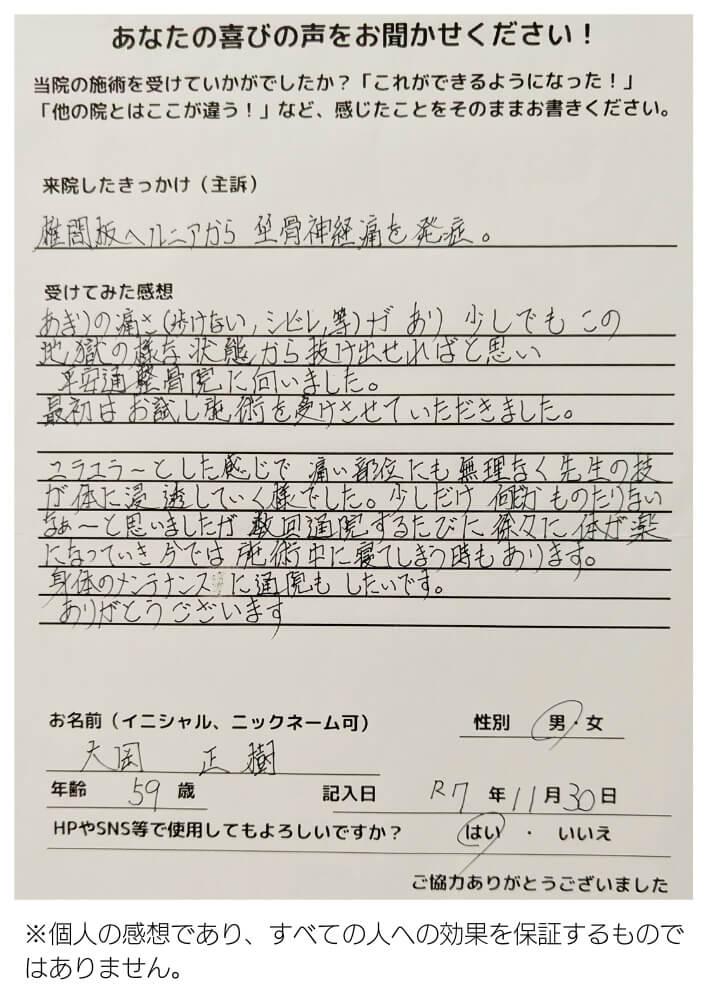 あなたの喜びの声をお聞かせください！
当院の施術を受けていかがでしたか？「これができるようになった！」
「他の院とはここが違う！」など、感じたことをそのままお書きください。
来院したきっかけ（主訴）
椎間板ヘルニアから 坐骨神経痛を発症。
受けてみた感想
あまりの痛さ(歩けない,シビレ,等)があり 少しでもこの
地獄の様な状態から抜け出せればと思い
平安通整骨院に向いました。
最初はお試し施術を受けさせていただきました。
ユラユラ～とした感じで 痛い部位にも無理なく先生の技
が体に浸透していく様でした。少しだけ 何だかものたりない
なぁ～と思いましたが 数回通院するたびに徐々に体が楽
になっていき今では施術中に寝てしまう時もあります。
身体のメンテナンスに通院もしたいです。
ありがとうございます
お名前（イニシャル、ニックネーム可） 性別 男・女
大岡 正樹
年齢 59 歳 記入日 R7 年 11 月 30 日
HPやSNS等で使用してもよろしいですか？ はい ・ いいえ
ご協力ありがとうございました
※個人の感想であり、すべての人への効果を保証するもので
はありません。